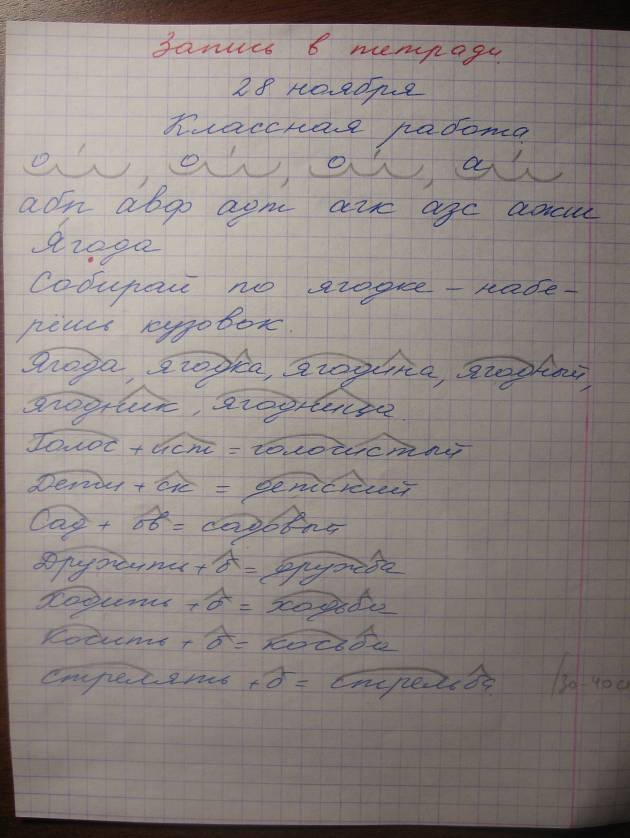 Запись в тетради.
28 ноября
Классная работа
о , о , о , а
абп авф адт агк азс ажш
Я́года
Собирай по ягодке – набе-
рёшь кузовок.
Ягода, ягодка, ягодина, ягодный,
ягодник, ягодница.
Голос + ист = голосистый
Дети + ск = детский
Сад + ов = садовый
Дружить + б = дружба
Ходить + б = ходьба
Косить + б = косьба
Стрелять + б = стрельба.